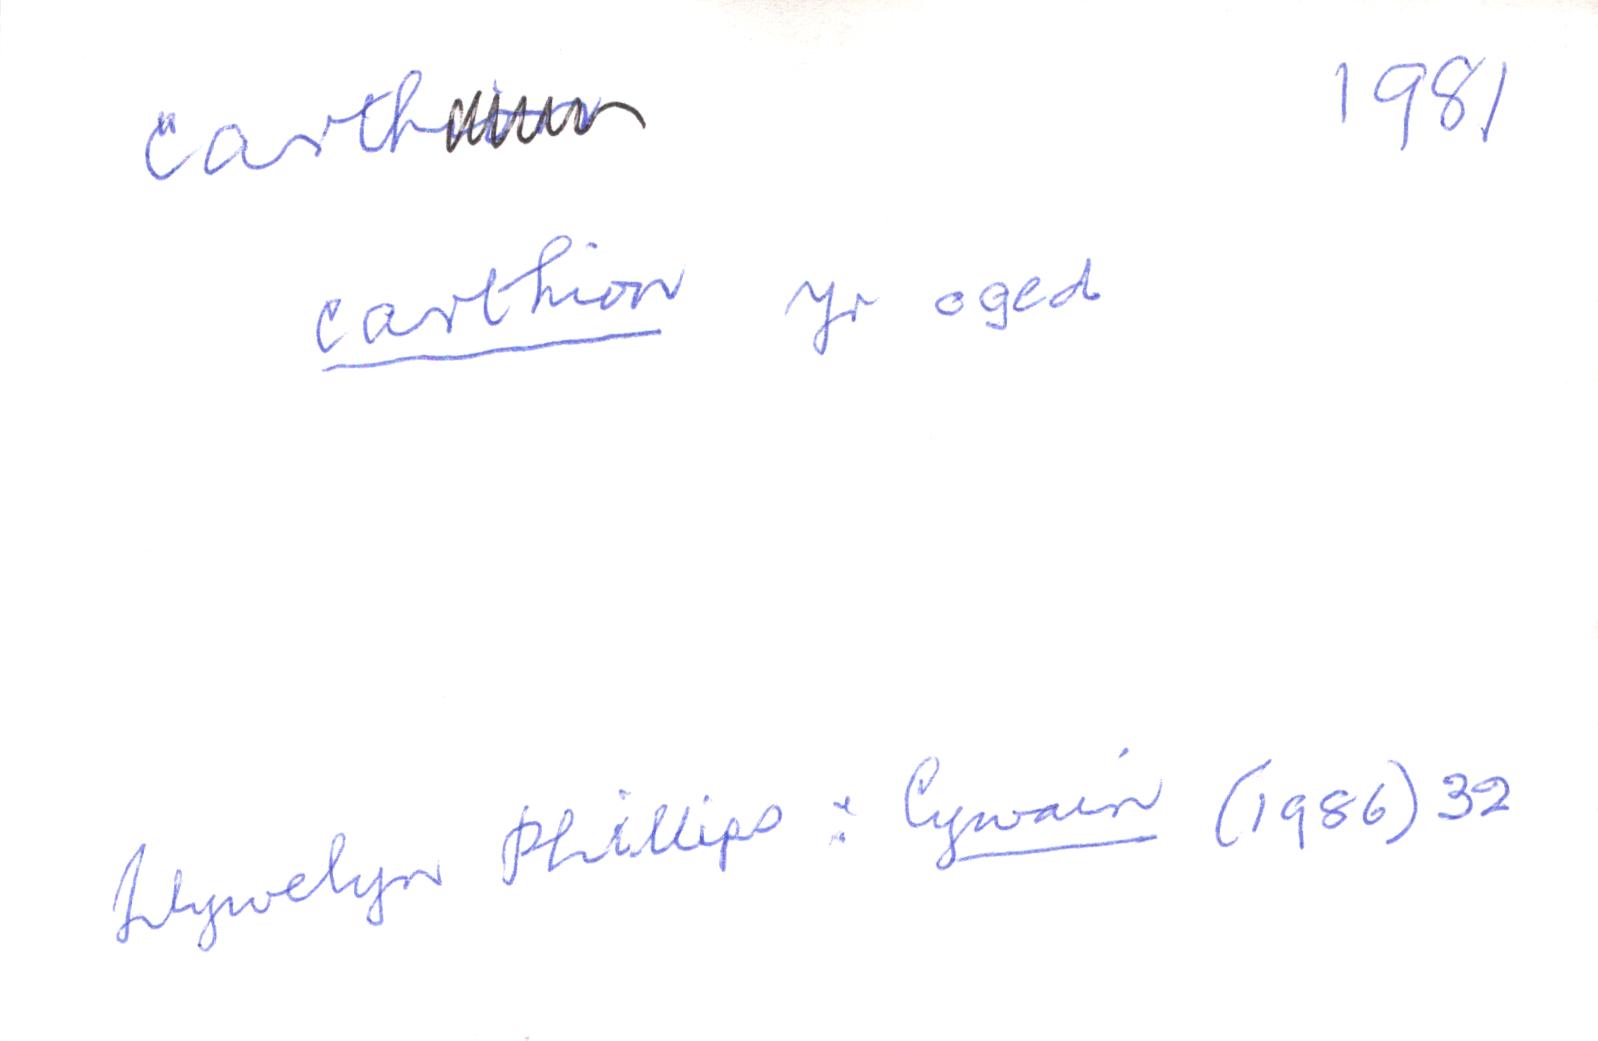 carth 1981
carthion yr oged
Llywelyn Phillips : Cywain (1986) 32